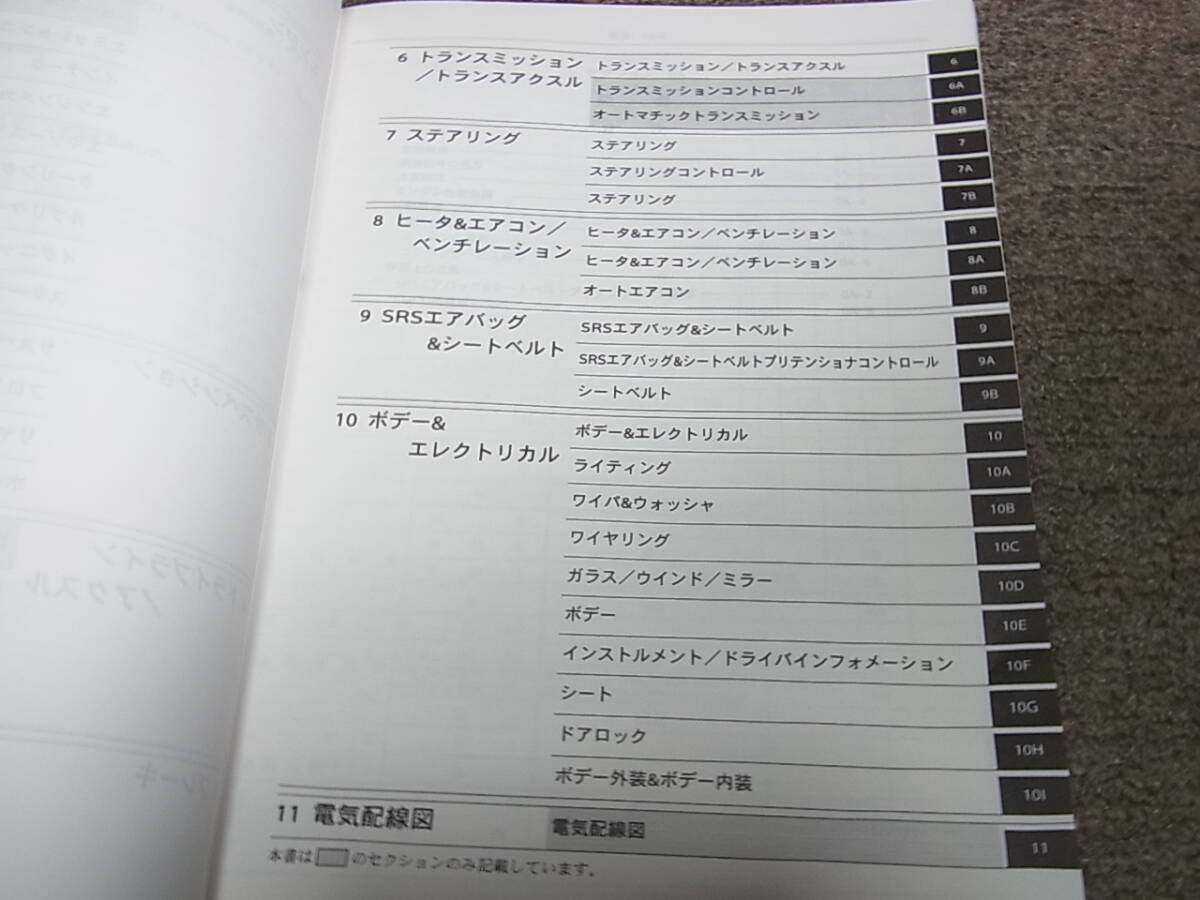 6 トランスミッション
／トランスアクスル
トランスミッション／トランスアクスル 6
トランスミッションコントロール 6A
オートマチックトランスミッション 6B
7 ステアリング
ステアリング 7
ステアリングコントロール 7A
ステアリング 7B
8 ヒータ&エアコン／
ベンチレーション
ヒータ&エアコン／ベンチレーション 8
ヒータ&エアコン／ベンチレーション 8A
オートエアコン 8B
9 SRSエアバッグ
&シートベルト
SRSエアバッグ&シートベルト 9
SRSエアバッグ&シートベルトプリテンショナコントロール 9A
シートベルト 9B
10 ボデー&
エレクトリカル
ボデー&エレクトリカル 10
ライティング 10A
ワイパ&ウォッシャ 10B
ワイヤリング 10C
ガラス／ウインド／ミラー 10D
ボデー 10E
インストルメント／ドライバインフォメーション 10F
シート 10G
ドアロック 10H
ボデー外装&ボデー内装 10I
11 電気配線図
電気配線図 11
本書は のセクションのみ記載しています。